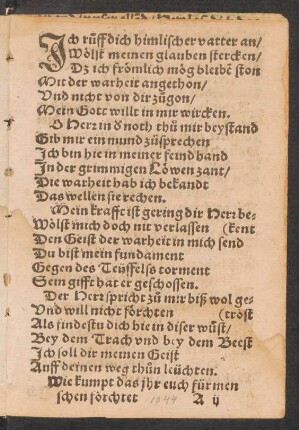 Ich rüff dich himlischer vatter an/
Wölst meinen glauben stercken/
Dz ich frömlich mög bleibē ston
Mit der warheit angethon/
Vnd nicht von dir zügon/
Mein Gott willt in mir wircken.
O Herr in ð noth thů mir beystand
Gib mir ein mund zůsprechen
Ich bin hie in meiner feind hand
In der grimmigen Löwen zant/
Die warheit hab ich bekandt
Das wellen sie rechen.
Mein krafft ist gering dir Herr be-
Wölst mich doch nit verlassen (kent
Den Geist der warheit in mich send
Du bist mein fundament
Gegen des Teüffels torment
Sein gifft hat er geschossen.
Der Herr spricht zů mir biß wol ge-
Vnd will nicht förchten (tröst
Als findestu dich hie in diser wüst/
Bey dem Trach vnd bey dem Beest
Ich soll dir meinen Geist
Auff deinen weg thůn leüchten.
Wie kumpt das jhr euch für men
schen förchtet 1044 A ij